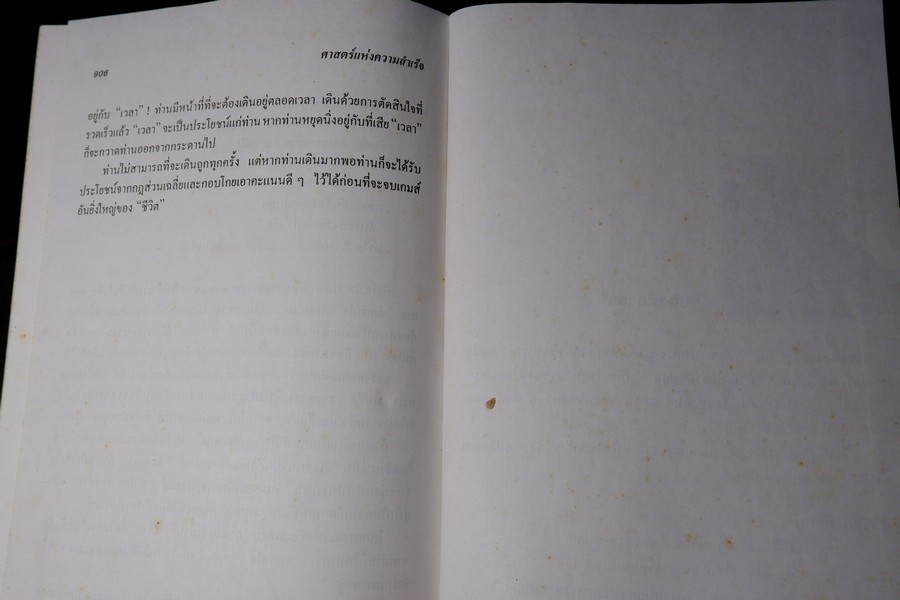 ๑๐๘
ศาสตร์แห่งความสำเร็จ
อยู่กับ “เวลา” ! ท่านมีหน้าที่ที่จะต้องเดินอยู่ตลอดเวลา เดินด้วยการตัดสินใจที่
รวดเร็วแล้ว “เวลา” จะเป็นประโยชน์แก่ท่าน หากท่านหยุดนิ่งอยู่กับที่เสีย “เวลา”
ก็จะกวาดท่านออกจากกระดานไป
ท่านไม่สามารถที่จะเดินถูกทุกครั้ง แต่หากท่านเดินมากพอท่านก็จะได้รับ
ประโยชน์จากกฎส่วนเฉลี่ยและกอบโกยเอาคะแนนดี ๆ ไว้ได้ก่อนที่จะจบเกมส์
อันยิ่งใหญ่ของ “ชีวิต”